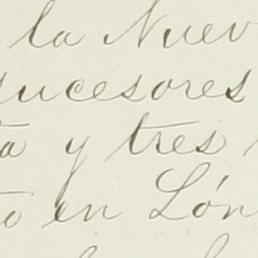 la Nuev
sucesores
a y tres
to en Lón